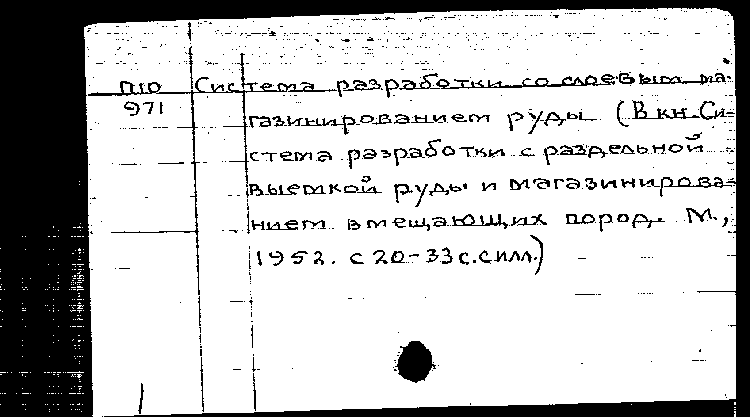 П10 Система разработки со слоевым ма-
971 газинированием руды (В кн. Си-
стема разработки с раздельной
выемкой руды и магазинирова-
нием вмещающих пород. М,
1952. с 20-33 с.силл.)